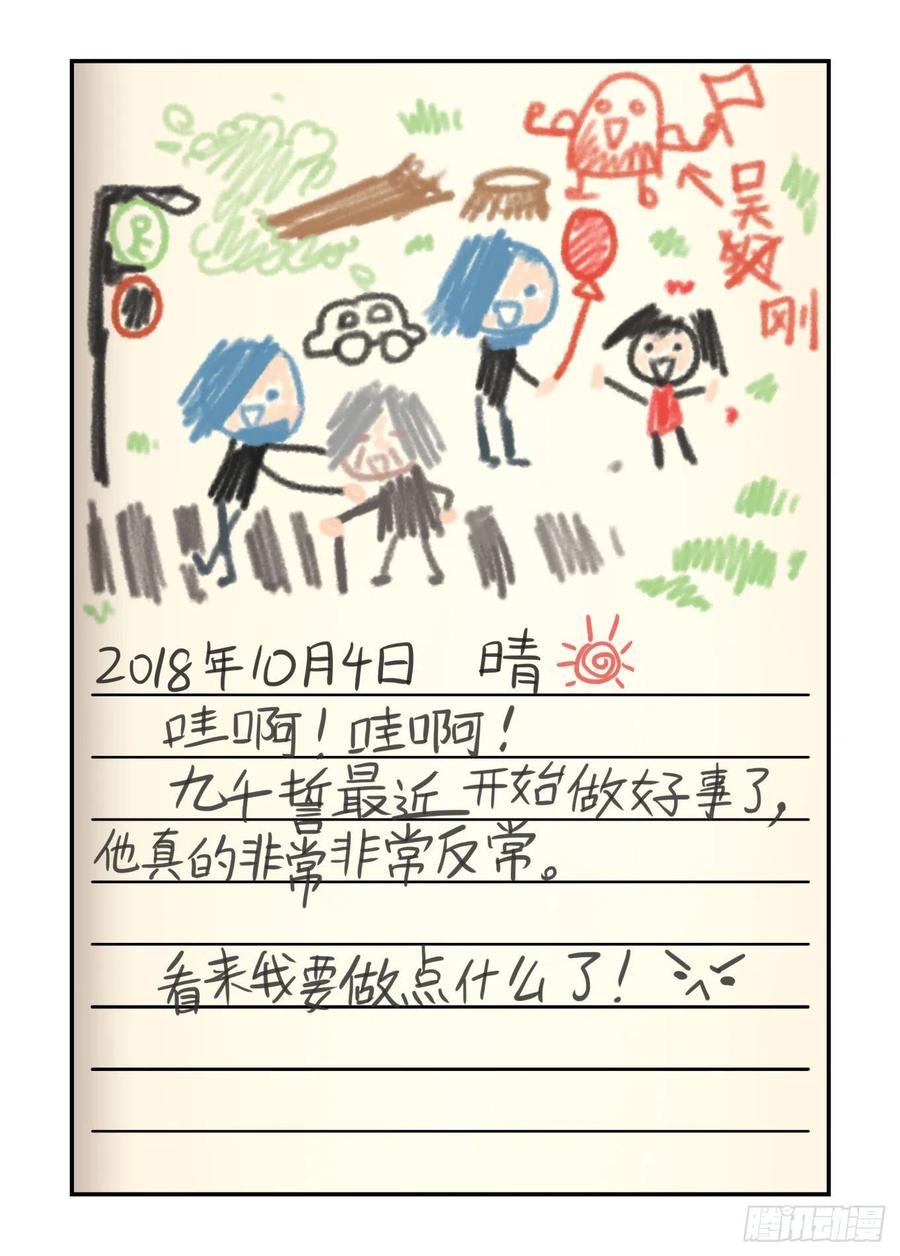 吴
刚
2018年10月4日 晴
哇啊!哇啊!
九千哲最近开始做好事了,
他真的非常非常反常。
看来我要做点什么了!
腾讯动漫